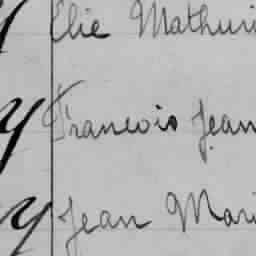 y Elie Mathuri
y Francois Jean
y Jean Mari